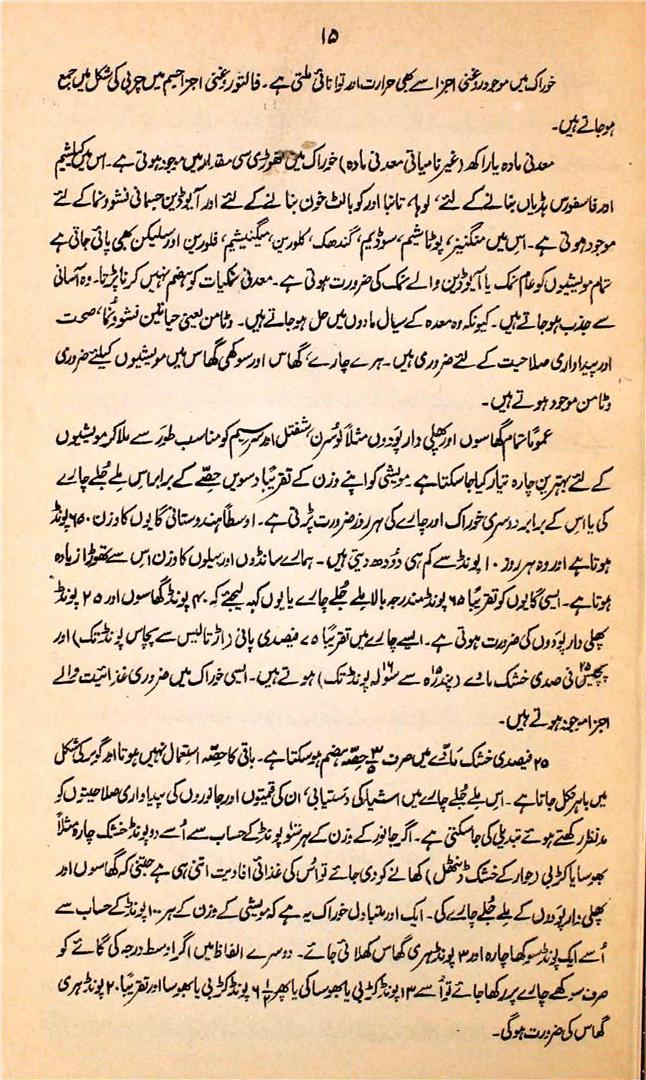 ۱۵
خوراک میں موجود روغنی اجزا سے بھی حرارت اور توانائی ملتی ہے۔ فالتو روغنی اجزا جسم میں چربی کی شکل میں جمع
ہو جاتے ہیں۔
معدنی مادہ یا راکھ (غیر نامیاتی معدنی مادہ) خوراک میں تھوڑی سی مقدار میں موجود ہوتی ہے۔ اس میں کیلشیم
اور فاسفورس ہڈیاں بنانے کے لئے، لوہا، تانبا اور کوبالٹ خون بنانے کے لئے اور آیوڈین جسمانی نشوونما کے لئے
موجود ہوتی ہے۔ اس میں منگنیز، پوٹاشیم، سوڈیم، گندھک، کلورین، میگنیشیم، فلورین اور سیلیکن بھی پائی جاتی ہے
تمام مویشیوں کو عام نمک یا آیوڈین والے نمک کی ضرورت ہوتی ہے۔ معدنی نمکیات کو ہضم نہیں کرنا پڑتا۔ وہ آسانی
سے جذب ہو جاتے ہیں۔ کیونکہ وہ معدہ کے سیال مادوں میں حل ہو جاتے ہیں۔ وٹامن یعنی حیاتین نشوونما، صحت
اور پیداواری صلاحیت کے لئے ضروری ہیں۔ ہرے چارے، گھاس اور سوکھی گھاس میں مویشیوں کیلئے ضروری
وٹامن موجود ہوتے ہیں۔
عموماً تمام گھاسوں اور پھلی دار پودوں مثلاً لوسرن، شفتل اور سرسیم کو مناسب طور سے ملا کر مویشیوں
کے لئے بہترین چارہ تیار کیا جا سکتا ہے۔ مویشی کو اپنے وزن کے تقریباً دسویں حصّے کے برابر اس ملے جُلے چارے
کی یا اس کے برابر دوسری خوراک اور چارے کی ہر روز ضرورت پڑتی ہے۔ اوسطاً ہندوستانی گایوں کا وزن ۶۵۰ پونڈ
ہوتا ہے اور وہ ہر روز ۱۰ پونڈ سے کم ہی دودھ دیتی ہیں۔ ہمارے سانڈوں اور بیلوں کا وزن اس سے تھوڑا زیادہ
ہوتا ہے۔ ایسی گایوں کو تقریباً ۶۵ پونڈ مندرجہ بالا ملے جُلے چارے یا یوں کہہ لیجئے کہ ۴۰ پونڈ گھاسوں اور ۲۵ پونڈ
پھلی دار پودوں کی ضرورت ہوتی ہے۔ ایسے چارے میں تقریباً ۷۵ فیصدی پانی (اڑتالیس سے پچاس پونڈ تک) اور
پچیس ۲۵ فی صدی خشک مادے (پندرہ ۱۵ سے سولہ ۱۶ پونڈ تک) ہوتے ہیں۔ ایسی خوراک میں ضروری غذائیت والے
اجزا موجود ہوتے ہیں۔
۲۵ فیصدی خشک مادّے میں صرف ۳/۵ حصّہ ہضم ہو سکتا ہے۔ باقی کا حصّہ استعمال نہیں ہوتا اور گوبر کی شکل
میں باہر نکل جاتا ہے۔ اس ملے جُلے چارے میں اشیا کی دستیابی، ان کی قمیتوں اور جانوروں کی پیداواری صلاحیتوں کو
مد نظر رکھتے ہوئے تبدیلی کی جا سکتی ہے۔ اگر جانور کے وزن کے ہر سو ۱۰۰ پونڈ کے حساب سے اُسے دو پونڈ خشک چارہ مثلاً
بھوسا یا کڑبی (جوار کے خشک ڈنٹھل) کھانے کو دی جائے تو اس کی غذائی افادیت اتنی ہی ہے جتنی کہ گھاسوں اور
پھلی دار پودوں کے ملے جُلے چارے کی۔ ایک اور متبادل خوراک یہ ہے کہ مویشی کے وزن کے ہر ۱۰۰ پونڈ کے حساب سے
اُسے ایک پونڈ سوکھا چارہ اور ۳ پونڈ ہری گھاس کھلائی جائے۔ دوسرے الفاظ میں اگر اوسط درجہ کی گائے کو
صرف سوکھے چارے پر رکھا جائے تو اُسے ۱۳ پونڈ کڑبی یا بھوسا کی یا پھر ۶ ۱/۲ پونڈ کڑبی یا بھوسا اور تقریباً ۲۰ پونڈ ہری
گھاس کی ضرورت ہوگی۔